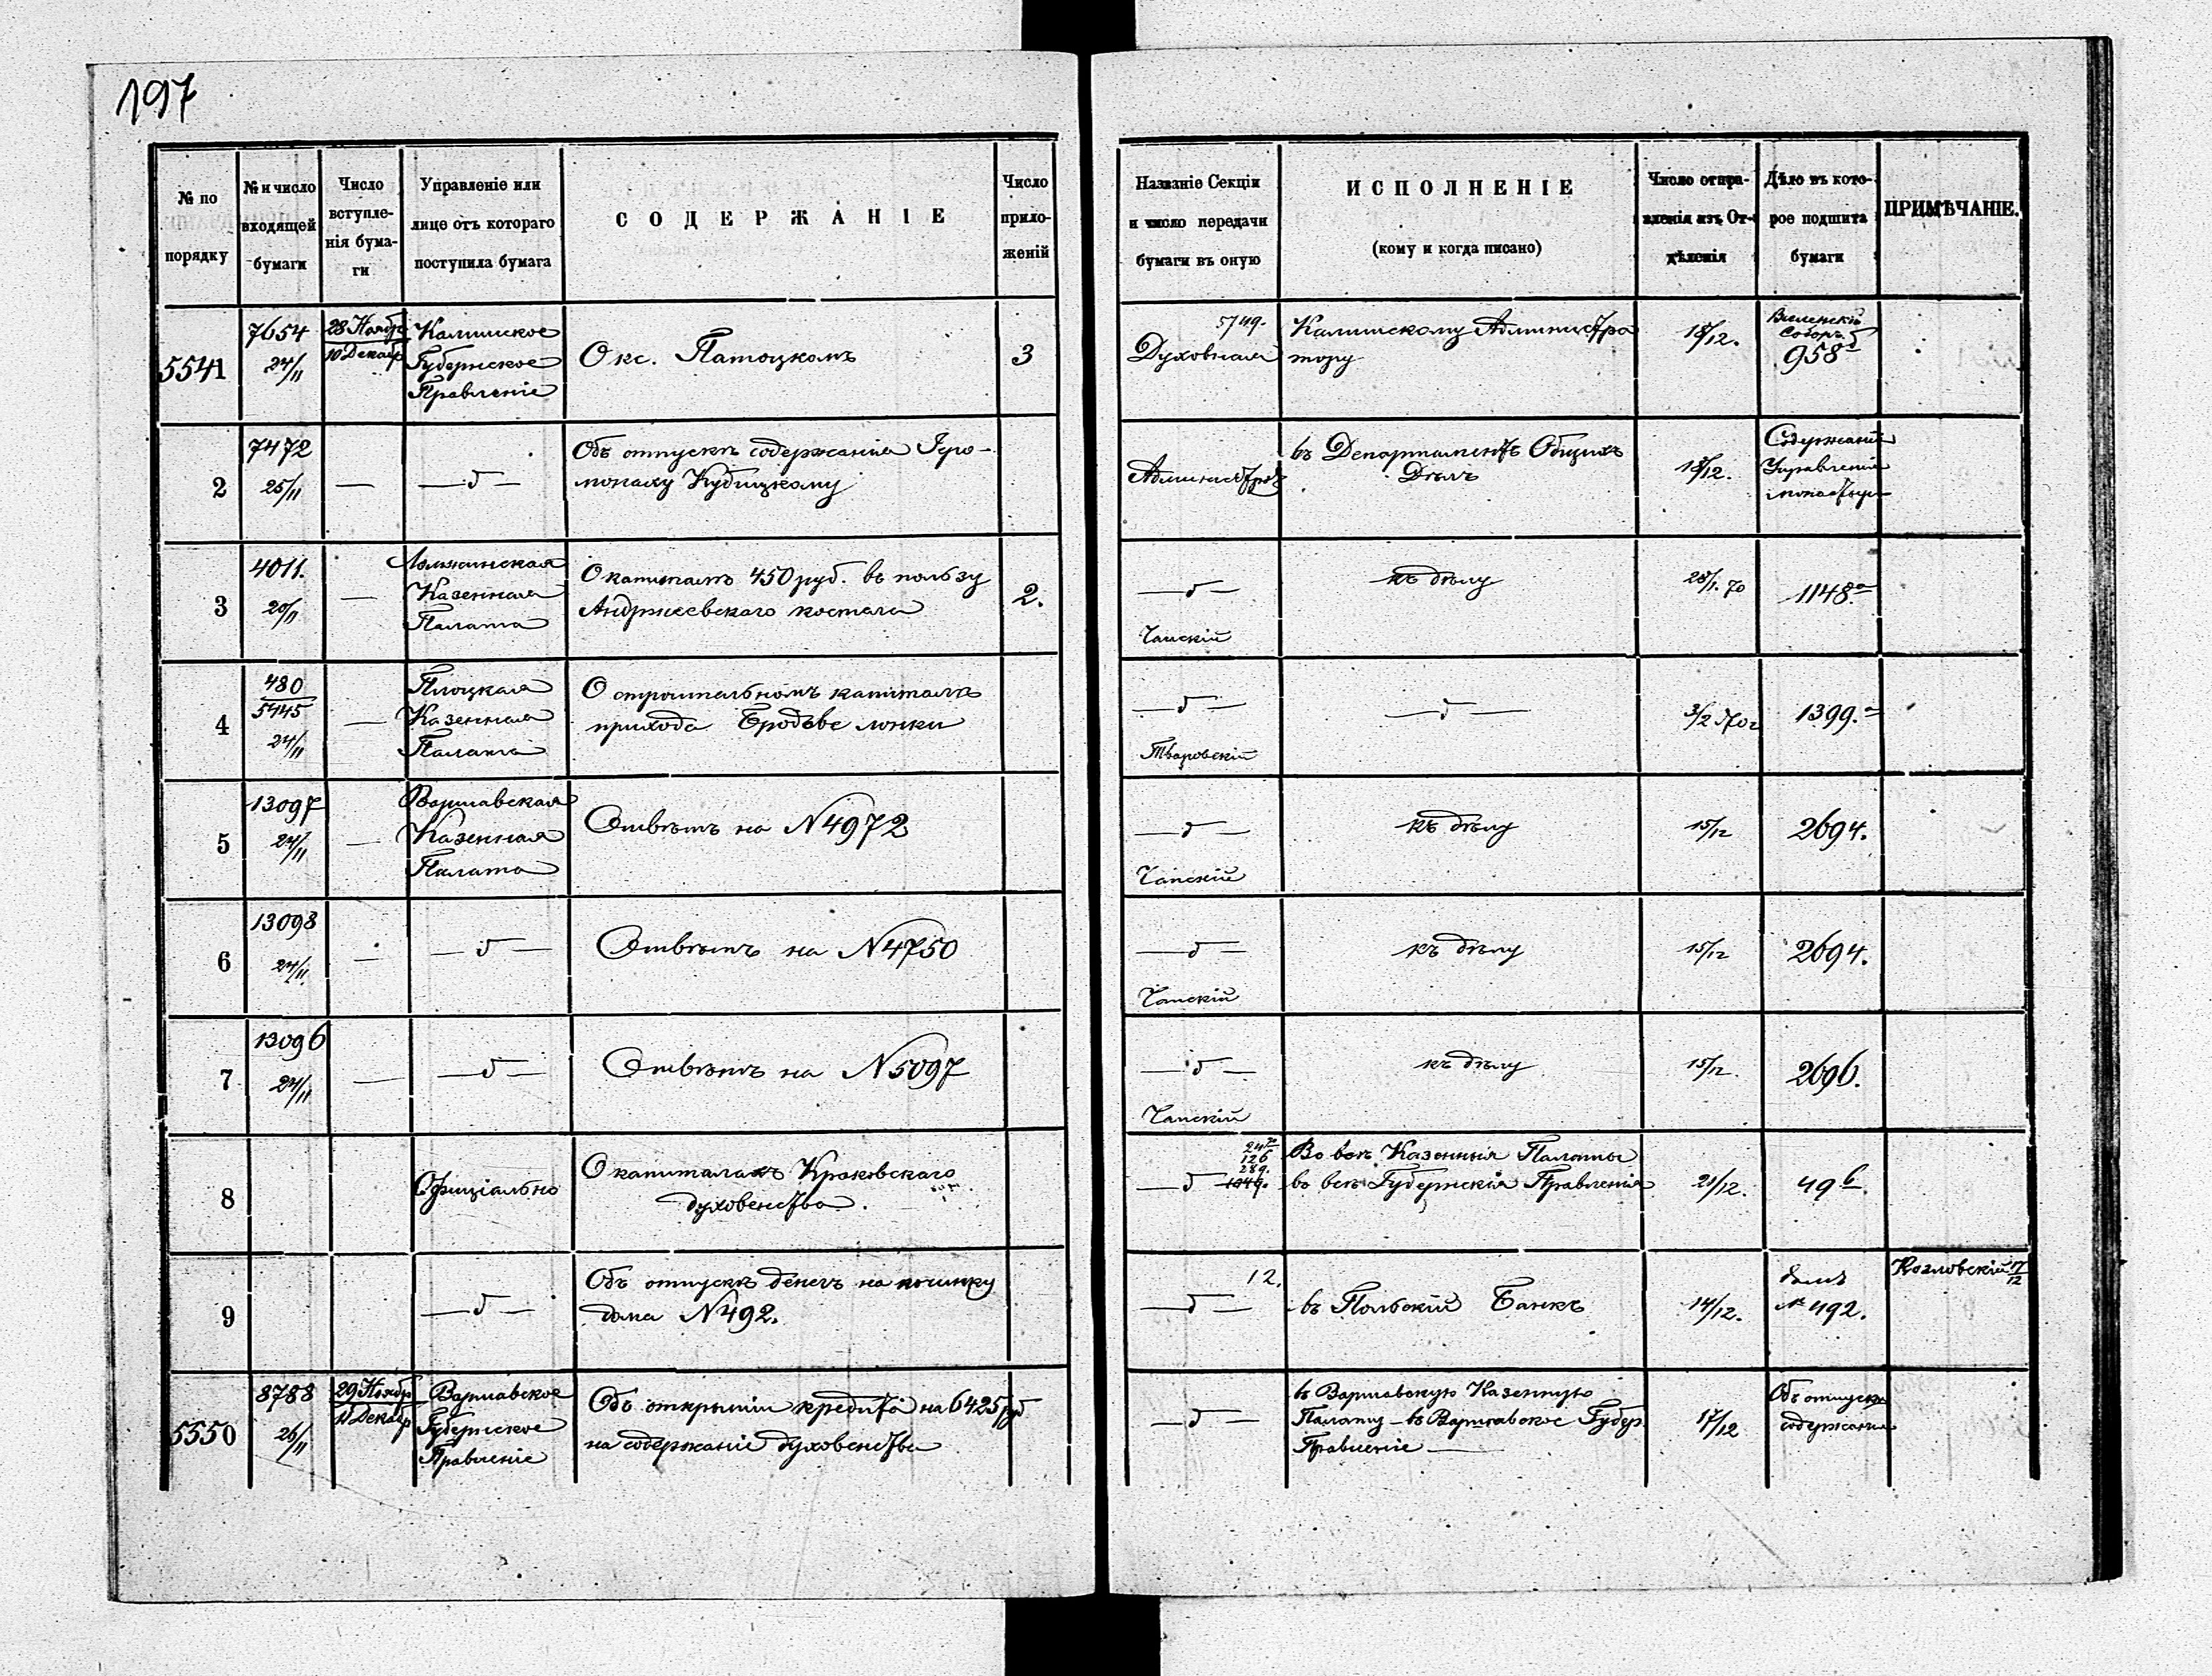 197
№ по порядку
№ и число входящей бумаги
Число вступле-нія бума-ги
Управленіе или лице отъ котораго поступила бумага
СОДЕРЖАНІЕ
Число прило-женій
Названіе Секціи и число передачи бумаги въ оную
ИСПОЛНЕНІЕ
(кому и когда писано)
Число отпра-вленія изъ От-дѣленія
Дѣло въ кото-рое подшита бумаги
ПРИМѢЧАНІЕ.
5541
7654
24/11
28 Ноябр
10 Декабр
Калишское
Губернское
Правленіе
О кс. Патоцкомъ
3
5749.
Духовная
Калишскому Администра
тору
18/12.
Соборъ
958
2
7472
25/11
—
— д —
Объ отпускѣ содержанія Іеро-
монаху Кубицкому
въ Департаментъ Общихъ
Дѣлъ
18/12.
Содержаніе
Управленія
3
4011.
20/11
—
Ломжинская
Казенная
Палата
О капиталѣ 450 руб. въ пользу
Андржеевскаго костела
2.
— д —
Чапскій
къ дѣлу
28/1. 70
1148.
4
480
5445
24/11
—
Плоцкая
Казенная
Палата
О строительномъ капиталѣ
прихода
— д —
— д —
3/2 70 г
1399.
5
13097
24/11
—
Варшавская
Казенная
Палата
Отвѣтъ на N 4972
— д —
Чапскій
къ дѣлу
15/12
2694.
6
13098
24/11.
—
— д —
Отвѣтъ на N 4750
— д —
Чапскій
къ дѣлу
15/12
2694.
7
13096
24/11
—
— д —
Отвѣтъ на N 5097
— д —
Чапскій
къ дѣлу
15/12.
2696.
8
Офиціально
О капиталахъ Краковскаго
духовенства.
126
289.
— д —
Во всѣ Казенныя Палаты
въ всѣ Губернскія Правленія
21/12.
49 б.
9
— д —
Объ отпускѣ денегъ на починку
дома N 492.
12.
— д —
въ Польскій Банкъ
14/12.
домъ
№ 492.
Козловскій 17/12
5550
8788
26/11
29 Ноябр
11 Декабр
Варшавское
Губернское
Правленіе
Объ открытіи кредита на 6425 руб
на содержаніе духовенства
— д —
въ Варшавскую Казенную
Палату — въ Варшавское Губер.
Правленіе —
17/12
Объ отпускѣ
содержанія